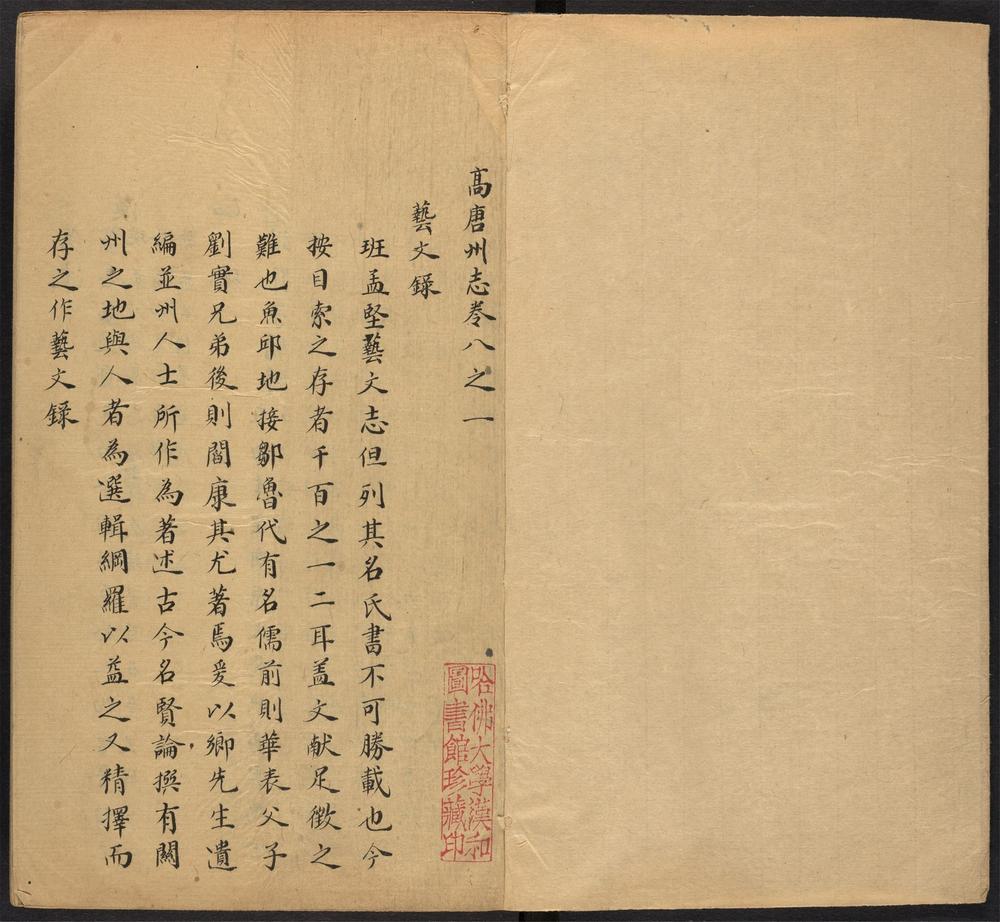 高唐州志卷八之一
藝文錄
班孟堅藝文志但列其名氏書不可勝載也今
按目索之存者千百之一二耳盖文献足徵之
難也魚邱地接鄒魯代有名儒前則華表父子
劉實兄弟後則閻康其尤著焉爰以鄉先生遺
編並州人士所作為著述古今名賢論撰有關
州之地與人者為選輯綱羅以益之又精擇而
存之作藝文錄
哈佛大學漢和
圖書館珍藏印